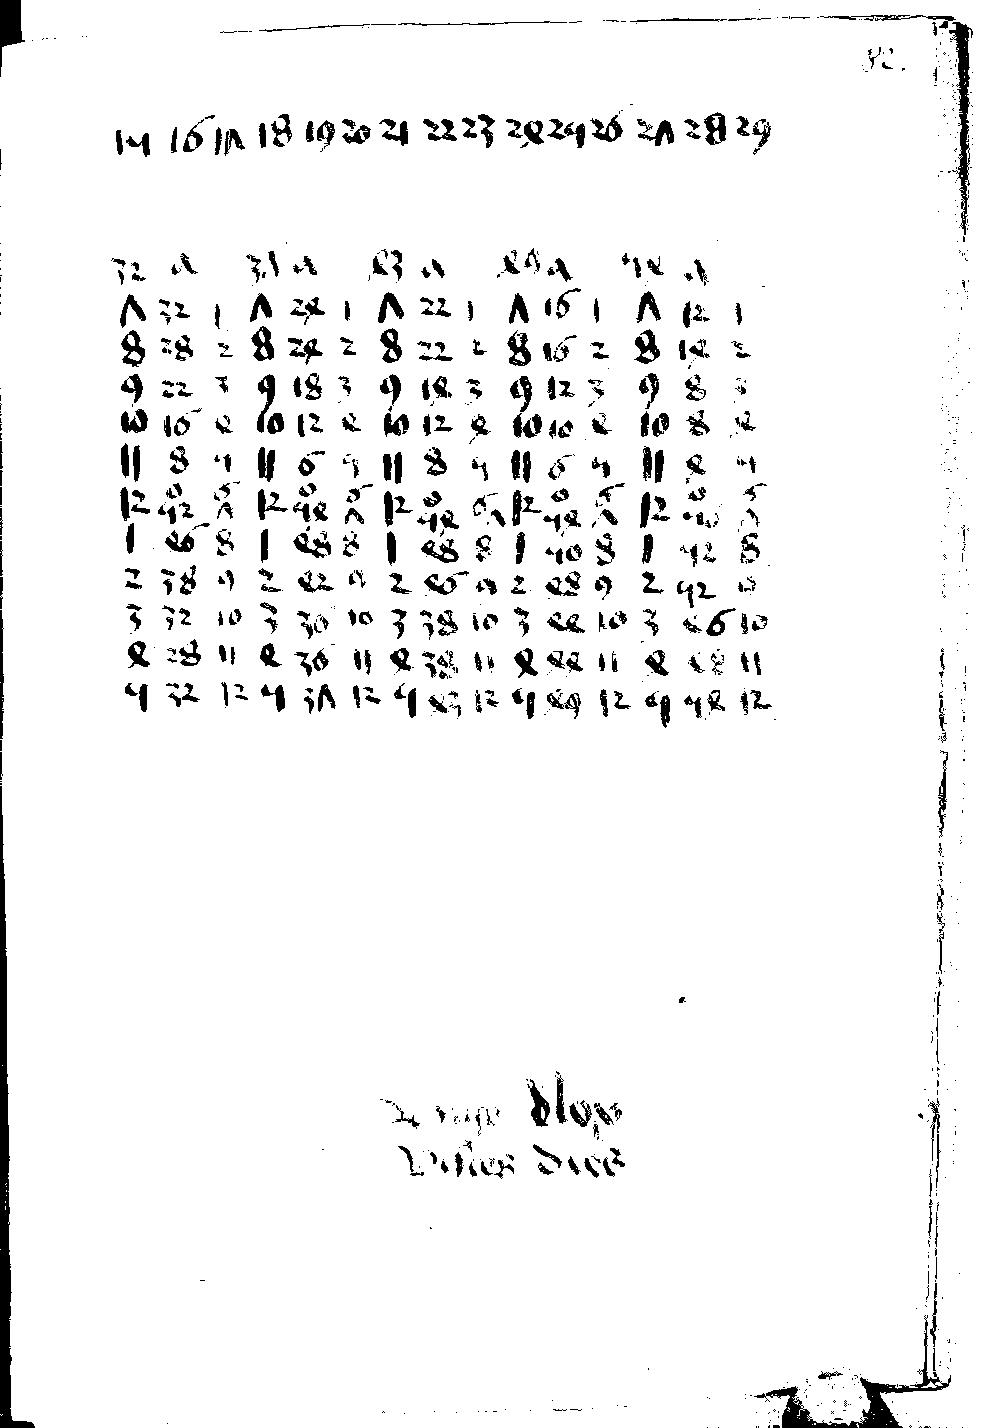 82.
15 16 17 18 19 20 21 22 23 24 25 26 27 28 29
32 a 37 a 43 a 49 a 54 a
7 32 1 7 24 1 7 22 1 7 16 1 7 12 1
8 28 2 8 24 2 8 22 2 8 16 2 8 14 2
9 22 3 9 18 3 9 14 3 9 12 3 9 8 3
10 16 4 10 12 4 10 12 4 10 10 4 10 8 4
11 8 5 11 6 5 11 8 5 11 6 5 11 4 5
12 0 6 12 0 6 12 0 6 12 0 6 12 0 6
52 7 54 7 54 7 54 7 50 7
1 46 8 1 48 8 1 48 8 1 50 8 1 52 8
2 38 9 2 42 9 2 46 9 2 48 9 2 52 9
3 32 10 3 36 10 3 38 10 3 44 10 3 46 10
4 28 11 4 36 11 4 38 11 4 44 11 4 48 11
5 32 12 5 37 12 5 43 12 5 49 12 5 54 12